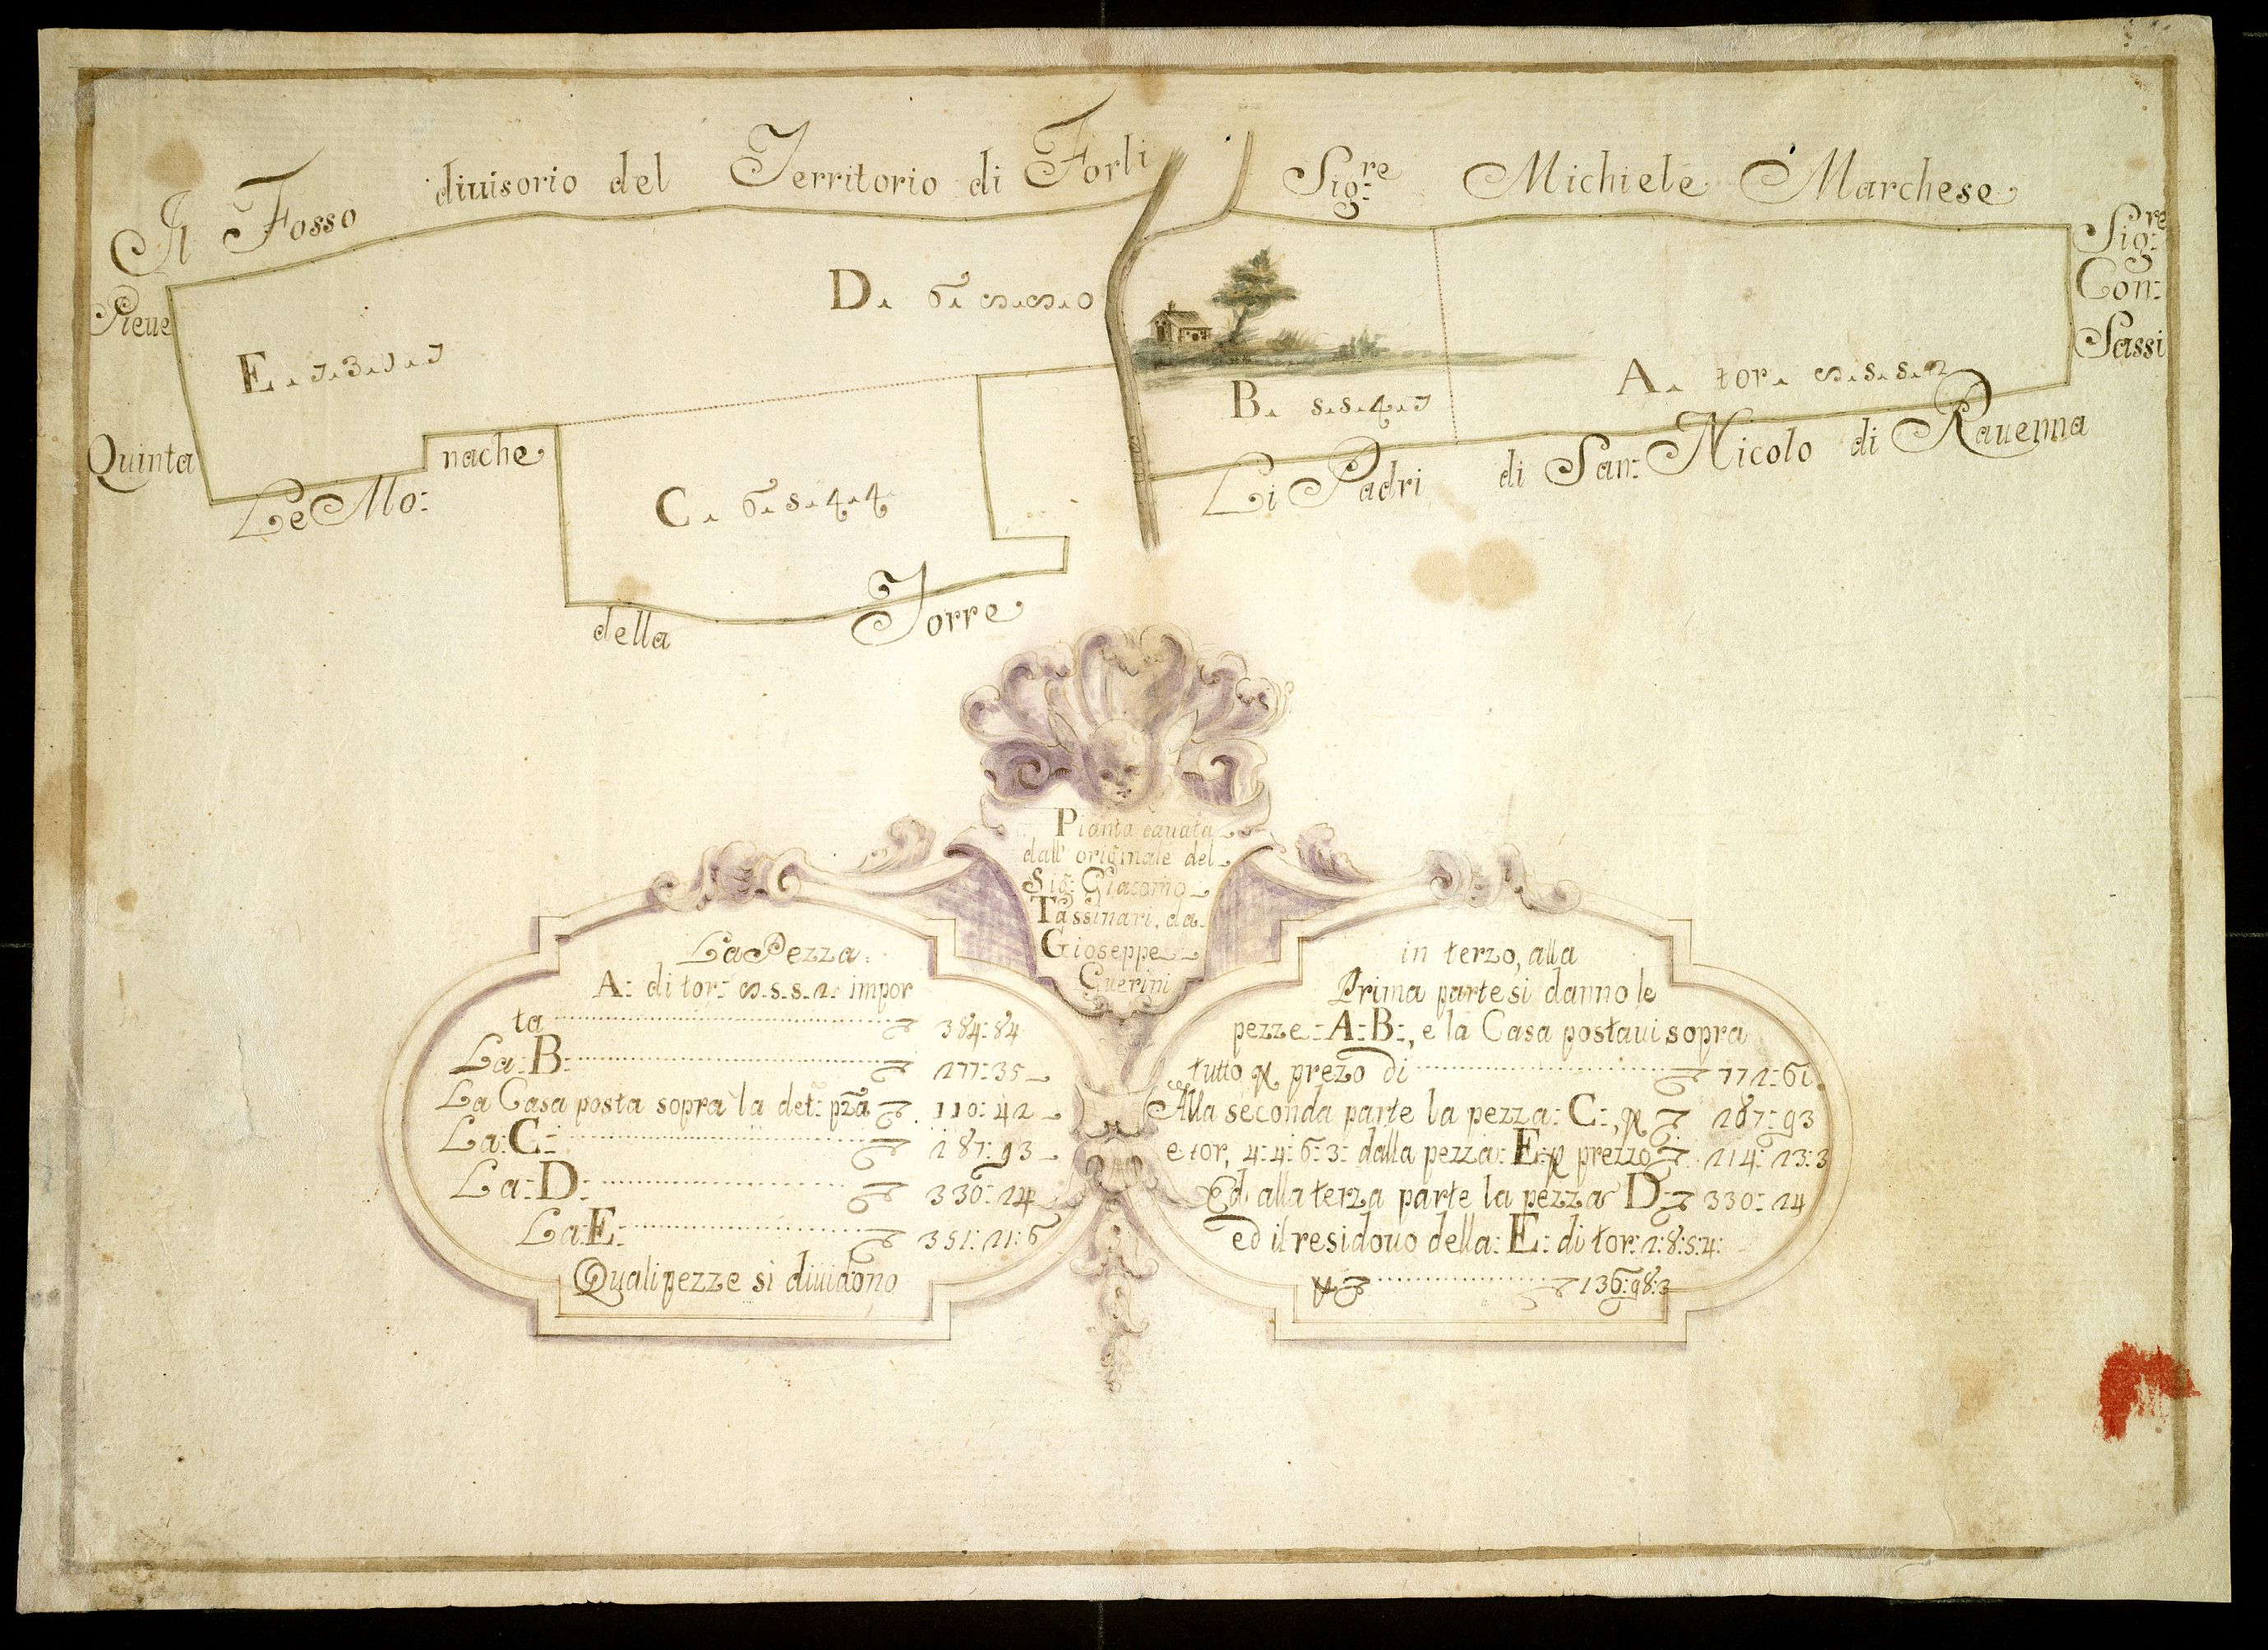 Il Fosso diuisorio del Territorio di Forli
Sig:re Michiele Marchese
Sig:re
Con:
Sassi
Pieue
Quinta
E.
D.
B.
A. tor.
C.
Le Mo:
nache
della Torre
Li Padri di San: Nicolo di Rauenna
Pianta cauata
dall' originale del
Sig: Giacomo
Tassinari, da
Gioseppe
Guerini
La Pezza
A: di tor: impor
ta 384:84
La:B: 277:35
La Casa posta sopra la det: pza 110:42
La:C: 287:93
La:D: 330:24
La:E: 351:21:6
Quali pezze si diuidono
in terzo, alla
Prima parte si danno le
pezze:A:B:, e la Casa postaui sopra
tutto prezo di 772:61
Alla seconda parte la pezza: C:, 287:93
e tor, 4:4:6:3: dalla pezza: E: prezzo 214:23:3
Ed alla terza parte la pezza D: 330:24
ed il residouo della: E: di tor: 2:8:5:4:
136:98:3